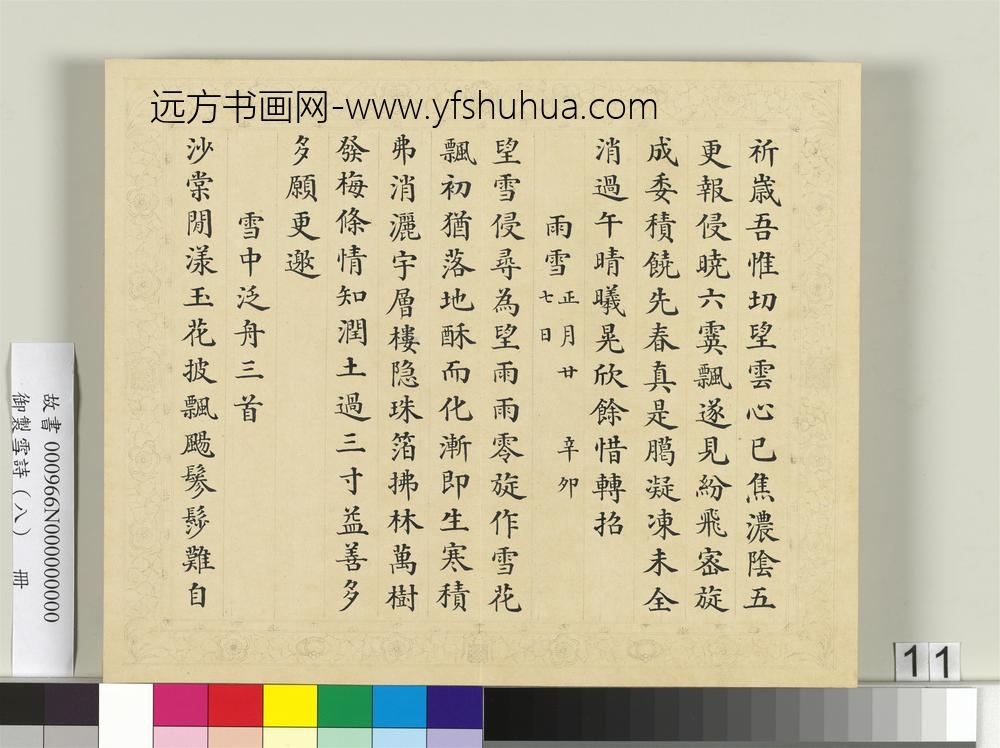 远方书画网-www.yfshuhua.com
祈嵗吾惟切望雲心已焦濃陰五
更報侵曉六霙飄遂見紛飛密旋
成委積饒先春真是臈凝凍未全
消過午晴曦晃欣餘惜轉招
雨雪 正月廿七日 辛卯
望雪侵尋為望雨雨零旋作雪花
飄初猶落地酥而化漸即生寒積
弗消灑宇層樓隐珠箔拂林萬樹
發梅條情知潤土過三寸益善多
多願更邀
雪中泛舟三首
沙棠閒漾玉花披飄颺鬖髿難自
故書 000966N000000000
御製雪詩(八) 冊
11